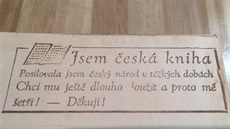 Jsem česká kniha
Posilovala jsem český národ v těžkých dobách
Chci mu ještě dlouho sloužit a proto mě
šetři! — Děkuji!